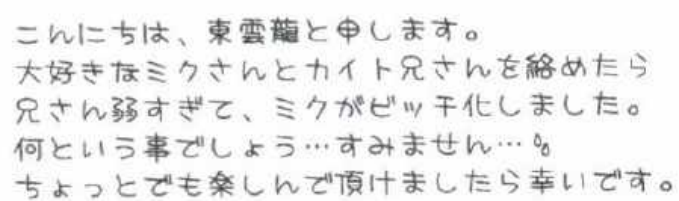 こんにちは、東雲龍と申します。
大好きなミクさんとカイト兄さんを絡めたら
兄さん弱すぎて、ミクがビッチ化しました。
何という事でしょう…すみません…
ちょっとでも楽しんで頂けましたら幸いです。